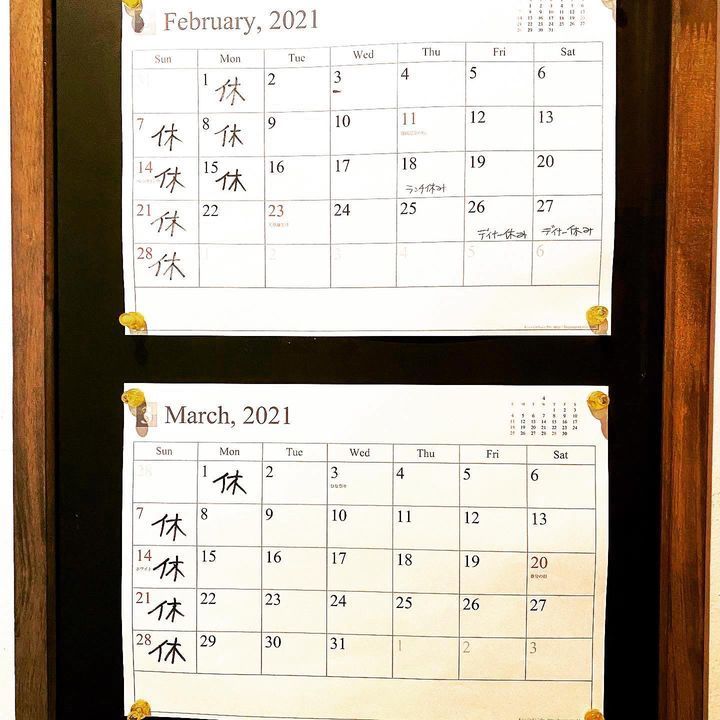 February, 2021
Sun Mon Tue Wed Thu Fri Sat
31 1 休 2 3 4 5 6
7 休 8 休 9 10 11 12 13
14 休 15 休 16 17 18 ランチ休み 19 20
21 休 22 23 24 25 26 ディナー休み 27 ディナー休み
28 休 1 2 3 4 5 6
March, 2021
Sun Mon Tue Wed Thu Fri Sat
28 1 休 2 3 4 5 6
7 休 8 9 10 11 12 13
14 休 15 16 17 18 19 20
21 休 22 23 24 25 26 27
28 休 29 30 31 1 2 3